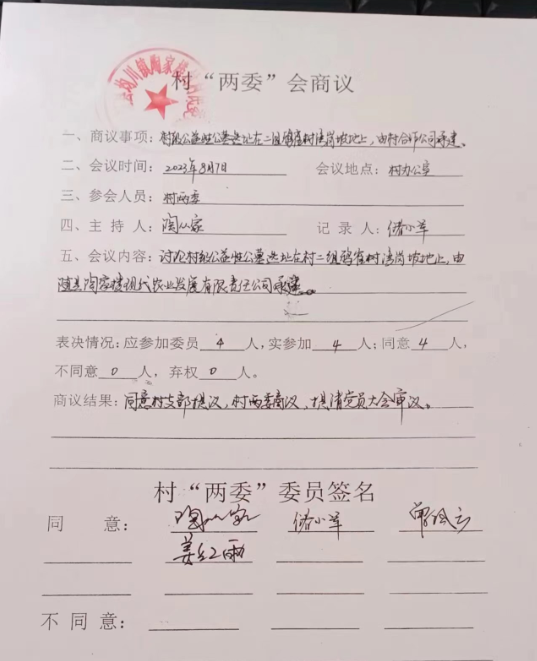 村“两委”会商议
一、商议事项：村级公益性公墓选址在二组鸦雀树湾岗坡地上，由村合作公司承建。
二、会议时间：2023年8月7日 会议地点：村办公室
三、参会人员：村两委
四、主 持 人：陶从家 记 录 人：储小军
五、会议内容：讨论村级公益性公墓选址在村二组鸦雀树湾岗坡地上，由
随县陶家楼现代农业发展有限责任公司承建。
表决情况：应参加委员 4 人，实参加 4 人；同意 4 人，
不同意 0 人，弃权 0 人。
商议结果：同意村支部提议，村两委商议，提请党员大会审议。
村“两委”委员签名
同 意： 陶从家 储小军
姜红雨
不 同 意：